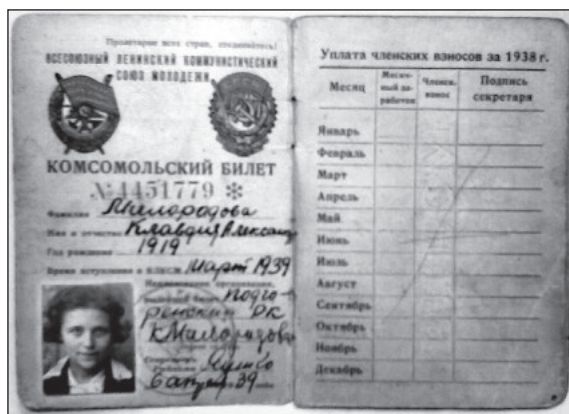 Пролетарии всех стран, соединяйтесь!
ВСЕСОЮЗНЫЙ ЛЕНИНСКИЙ КОММУНИСТИЧЕСКИЙ
СОЮЗ МОЛОДЕЖИ
КОМСОМОЛЬСКИЙ БИЛЕТ
№ 4451779 *
Фамилия Милорадова
Имя и отчество Клавдия Александ
Год рождения 1919
Время вступления в ВЛКСМ март 1939
Наименование организации,
выдавшей билет Подго-
ренский РК
КМилорадова
6 апреля 39
Уплата членских взносов за 1938 г.
Месяц Месяч-ный за-работок Членск. взнос Подпись секретаря
Январь
Февраль
Март
Апрель
Май
Июнь
Июль
Август
Сентябрь
Октябрь
Ноябрь
Декабрь